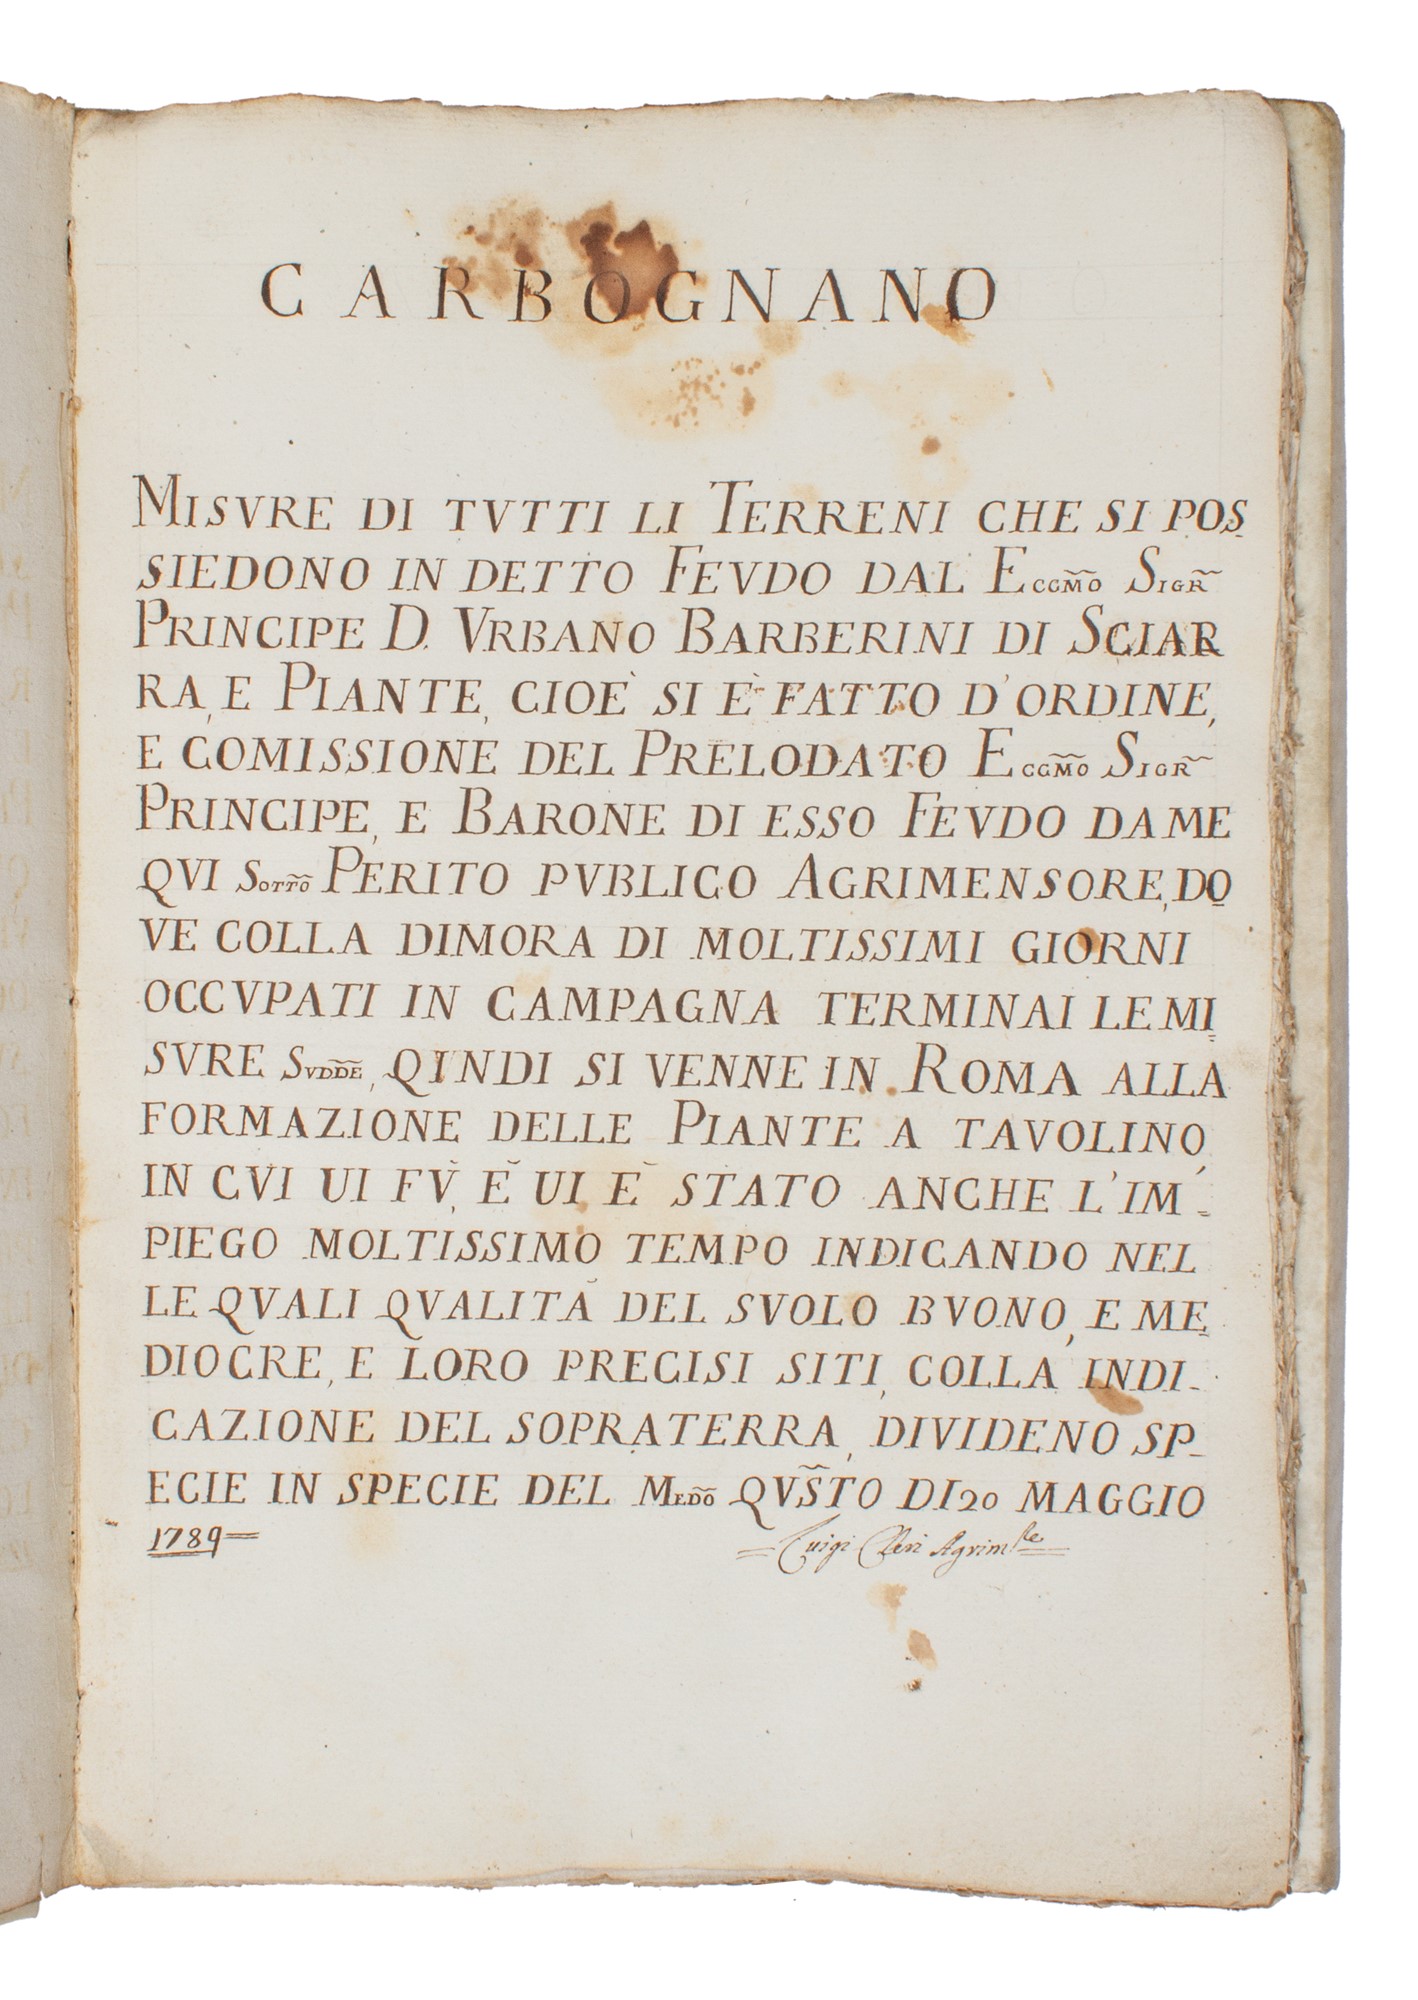 CARBOGNANO
MISVRE DI TVTTI LI TERRENI CHE SI POS
SIEDONO IN DETTO FEVDO DAL ECCM̃O SIGR̃
PRINCIPE D. VRBANO BARBERINI DI SCIAR
RA, E PIANTE, CIOÈ SI È FATTO D'ORDINE,
E COMISSIONE DEL PRELODATO ECCM̃O SIGR̃
PRINCIPE, E BARONE DI ESSO FEVDO DA ME
QVI SOTTÕ PERITO PVBLICO AGRIMENSORE, DO
VE COLLA DIMORA DI MOLTISSIMI GIORNI
OCCVPATI IN CAMPAGNA TERMINAI LE MI
SVRE SVDDẼ, QINDI SI VENNE IN ROMA ALLA
FORMAZIONE DELLE PIANTE A TAVOLINO,
IN CVI UI FV̀, È UI È STATO ANCHE L'IM-
PIEGO MOLTISSIMO TEMPO INDICANDO NEL
LE QVALI QVALITÀ DEL SVOLO BVONO, E ME
DIOCRE, E LORO PRECISI SITI, COLLA INDI-
CAZIONE DEL SOPRATERRA, DIVIDENO SP-
ECIE IN SPECIE DEL MEDÕ QVS̃TO DI 20 MAGGIO
1789= =Luigi Agrimre=